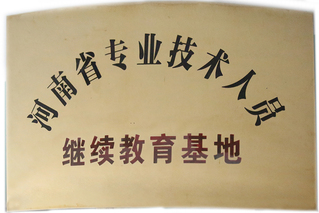 河南省专业技术人员
继续教育基地